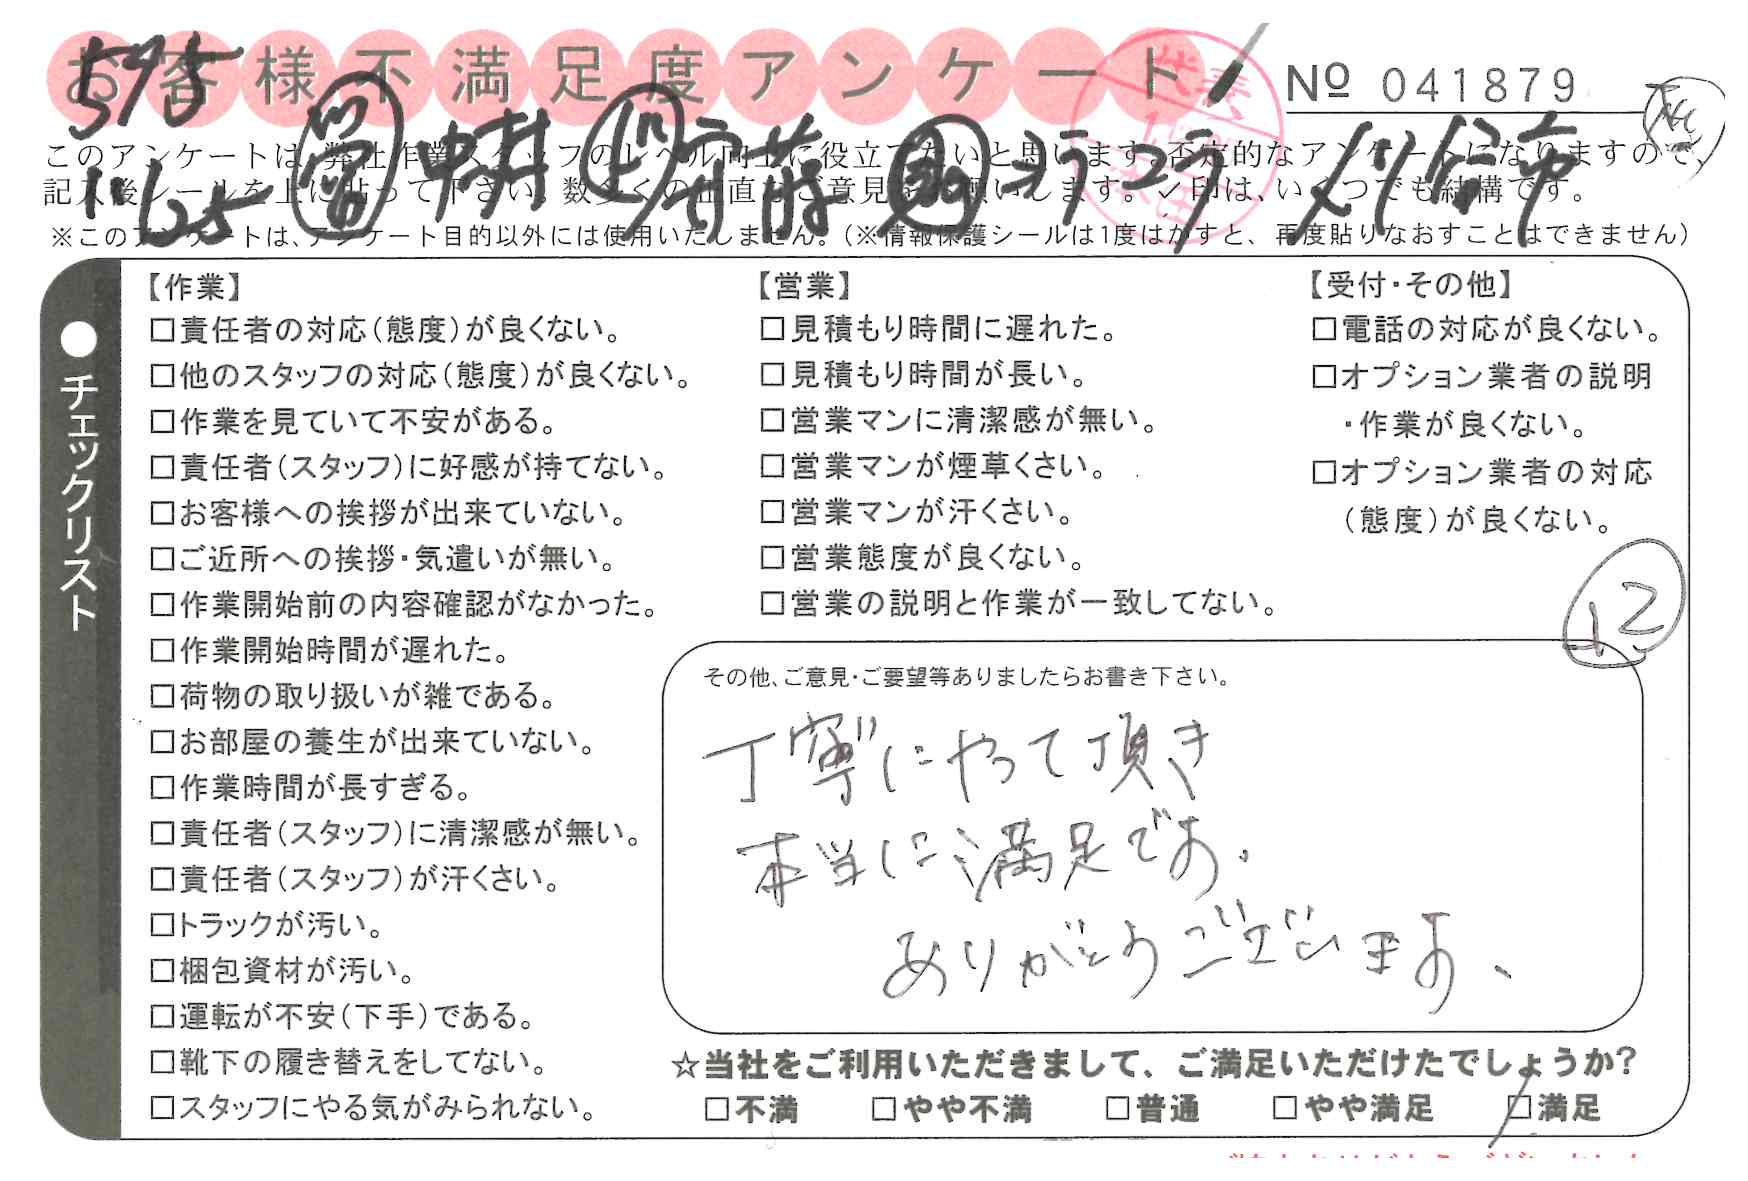 お客様不満足度アンケート
№ 041879
595
11/25
このアンケートは、弊社作業スタッフのレベル向上に役立てたいと思います。否定的なアンケートになりますので、
記入後シールを上に貼って下さい。数多くの正直なご意見をお願いします。✓印は、いくつでも結構です。
※このアンケートは、アンケート目的以外には使用いたしません。（※情報保護シールは1度はがすと、再度貼りなおすことはできません）
●チェックリスト
【作業】
□責任者の対応（態度）が良くない。
□他のスタッフの対応（態度）が良くない。
□作業を見ていて不安がある。
□責任者（スタッフ）に好感が持てない。
□お客様への挨拶が出来ていない。
□ご近所への挨拶・気遣いが無い。
□作業開始前の内容確認がなかった。
□作業開始時間が遅れた。
□荷物の取り扱いが雑である。
□お部屋の養生が出来ていない。
□作業時間が長すぎる。
□責任者（スタッフ）に清潔感が無い。
□責任者（スタッフ）が汗くさい。
□トラックが汚い。
□梱包資材が汚い。
□運転が不安（下手）である。
□靴下の履き替えをしてない。
□スタッフにやる気がみられない。
【営業】
□見積もり時間に遅れた。
□見積もり時間が長い。
□営業マンに清潔感が無い。
□営業マンが煙草くさい。
□営業マンが汗くさい。
□営業態度が良くない。
□営業の説明と作業が一致してない。
【受付・その他】
□電話の対応が良くない。
□オプション業者の説明
・作業が良くない。
□オプション業者の対応
（態度）が良くない。
12
その他、ご意見・ご要望等ありましたらお書き下さい。
丁寧にやって頂き
本当に満足です。
ありがとうございます、
☆当社をご利用いただきまして、ご満足いただけたでしょうか？
□不満 □やや不満 □普通 □やや満足 □満足